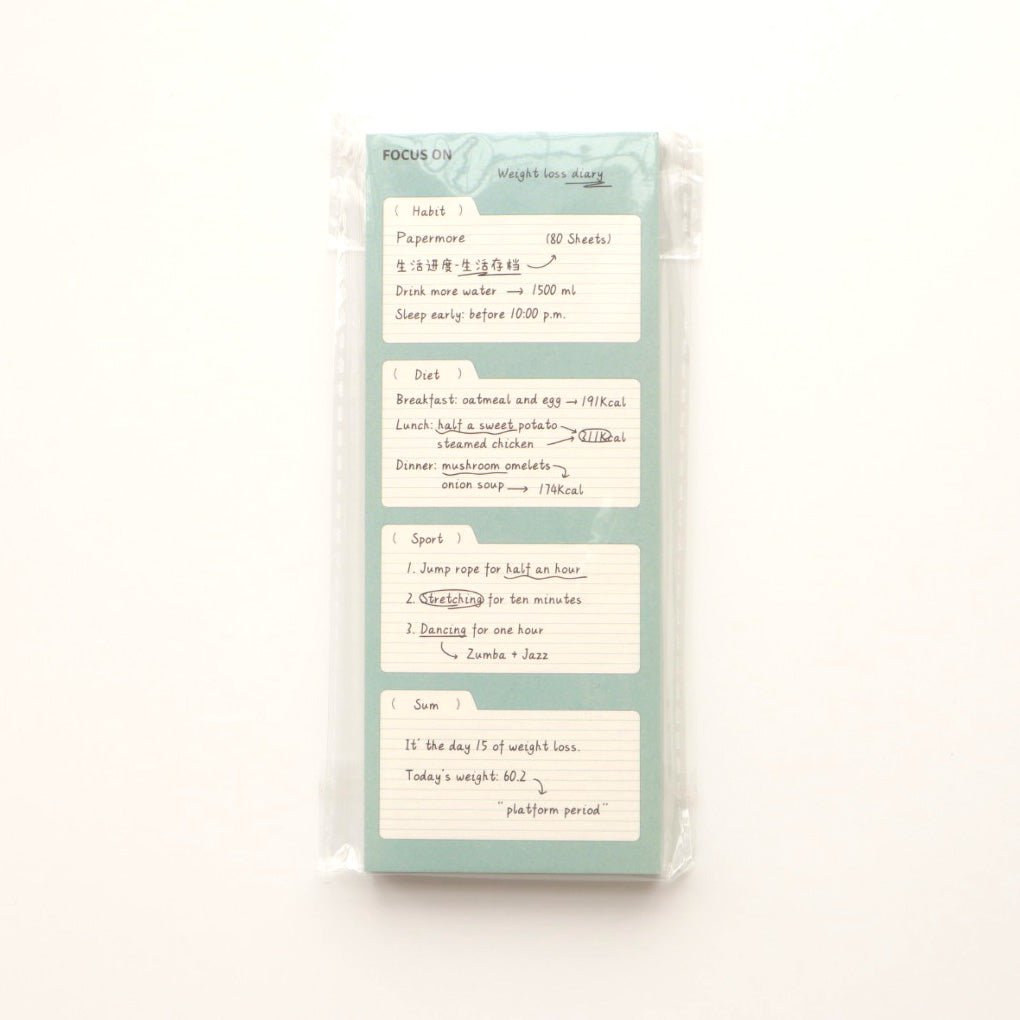 FOCUS ON
Weight loss diary
( Habit )
Papermore (80 Sheets)
生活进度-生活存档
Drink more water → 1500 ml
Sleep early: before 10:00 p.m.
( Diet )
Breakfast: oatmeal and egg → 191Kcal
Lunch: half a sweet potato
steamed chicken → 311Kcal
Dinner: mushroom omelets
onion soup → 174Kcal
( Sport )
1. Jump rope for half an hour
2. Stretching for ten minutes
3. Dancing for one hour
Zumba + Jazz
( Sum )
It' the day 15 of weight loss.
Today's weight: 60.2
"platform period"